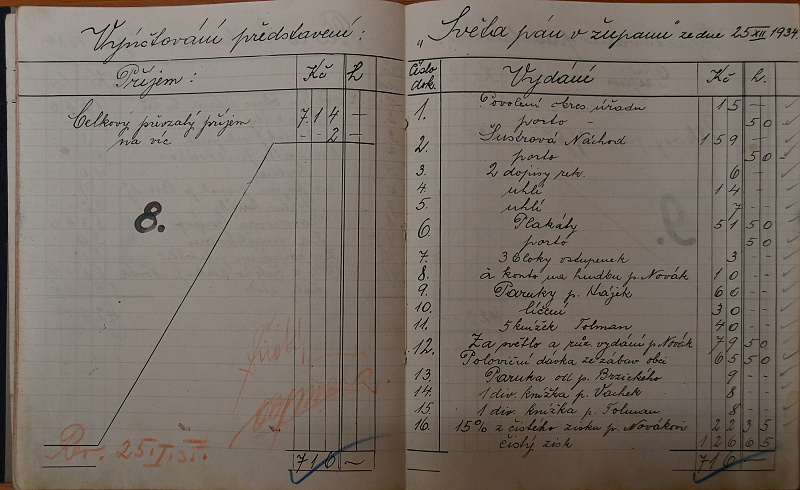 Vyúčtování představení:
Příjem: Kč h
Celkový převzatý příjem 714 —
na víc 2 —
8.
Rev. 25.
716 —
"Světa pán v županu" ze dne 25 XII 1934.
Číslo dok. Vydání Kč h.
1. Povolení okres. úřadu 15 —
porto - 50
2. Šustrová Náchod 159 —
porto 50
3. 2 dopisy rek. 6 --
4. uhlí 14 --
5. uhlí 7 --
6. Plakáty 51 50
porto 50
7. 3 bloky vstupenek 3 --
8. à konto na hudbu p. Novák 10 --
9. Paruky p. Hájek 60 --
10. líčení 30 --
11. 5 knížek Tolman 40 --
12. Za světlo a růz. vydání p. Novák 79 50
Poloviční dávka ze zábav obci 65 50
13. Paruka od p. Brzického 9 --
14. 1 div. knížka p. Vachek 8 --
15 1 div. knížka p. Tolman 8 --
16. 15% z čistého zisku p. Novákovi 22 35
čistý zisk 126 65
716 —